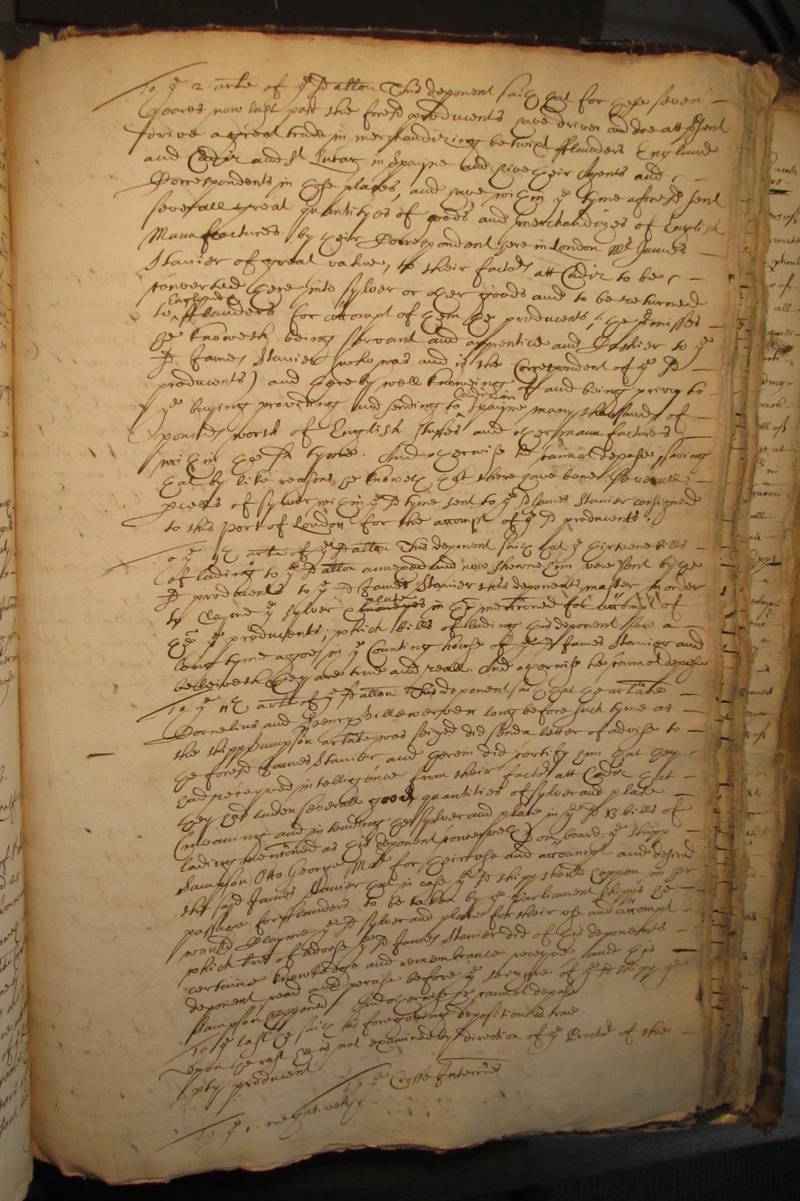 To ye 2 arle of ye sd allon This deponent saith that for these seven
yeares now last past the foresd producents have driven and doe att pr̃sent
drive a great trade in merchandizing betwixt fflanders England
and Cadiz and St Lucar in Spayne and have their Agents and
Correspondents in those places, and have within ye tyme aforesd sent
severall great quantityes of goods and merchandizes of English
Manufactures by their Correspondent here in London Mr James
Stanier of great value, to their factors att Cadiz to be
converted there into sylver or other goods and to be returned
to England &
fflanders for accompt of them the producents; the premisses
he knoweth being servant and apprentice and Cashier to ye
sd James Stanier (who was and is the Correspondent of ye sd
producents) and thereby well knowing of and being privy to
Cadiz in
ye buying providing and sending to Spayne many thousands of
pounds worth of English stuffes and other manufactures
within the sd tyme. And otherwise he cannot depose, saving
that by like reason he knoweth that there have bene severall
pieces of sylver within ye sd tyme sent to ye sd James Stanier consigned
to this Port of London for the accompt of ye sd producents.
To ye arle of ye sd allon This deponent saith that ye thirteene bills
of lading to ye sd allon annexed and now shewne him were sent by the
sd producents to ye sd James Stanier this deponents master in order
plate
to clayme ye sylver in them mentioned for accompt of
the producents; which bills of lading this deponent saw a
long tyme agoe in ye Counting house of ye sd James Stanier and
beleiveth they are true and reall. And otherwise he cannot depose
To ye arle of ye sd allon This deponent saith that the arlate
Cornelius and Henry long before such tyme as
the shipp Sampson arlate was seized did send a letter of advise to
the foresd James Stanier and therein did certify him that they
had received intelligence from their factors att Cadiz that
they had laden severall good quantities of sylver and plate
(meaning and intending the sylver and plate in ye sd 13 bills of
lading mentioned as this deponent conceiveth) on board ye shipp
Sampson Otto George Mr for their use and accompt and desired
the sd James Stanier that in case ye sd shipp should happen in her
passage for fflanders to be taken by ye Parliament shipps he
would clayme ye sd sylver and plate for their use and accompt
which lre of advise ye sd James Stanier did of this deponents
certaine knowledge and remembrance receive and this
deponent read and peruse before ye seizure of ye sd shipp ye
Sampson happened. And otherwise he cannot depose
To ye last he saith his foregoing deposition is true
Upon the rest he is not examined by direction of ye of the
sd producent
To ye Crosse Interries
To ye 1. negatively